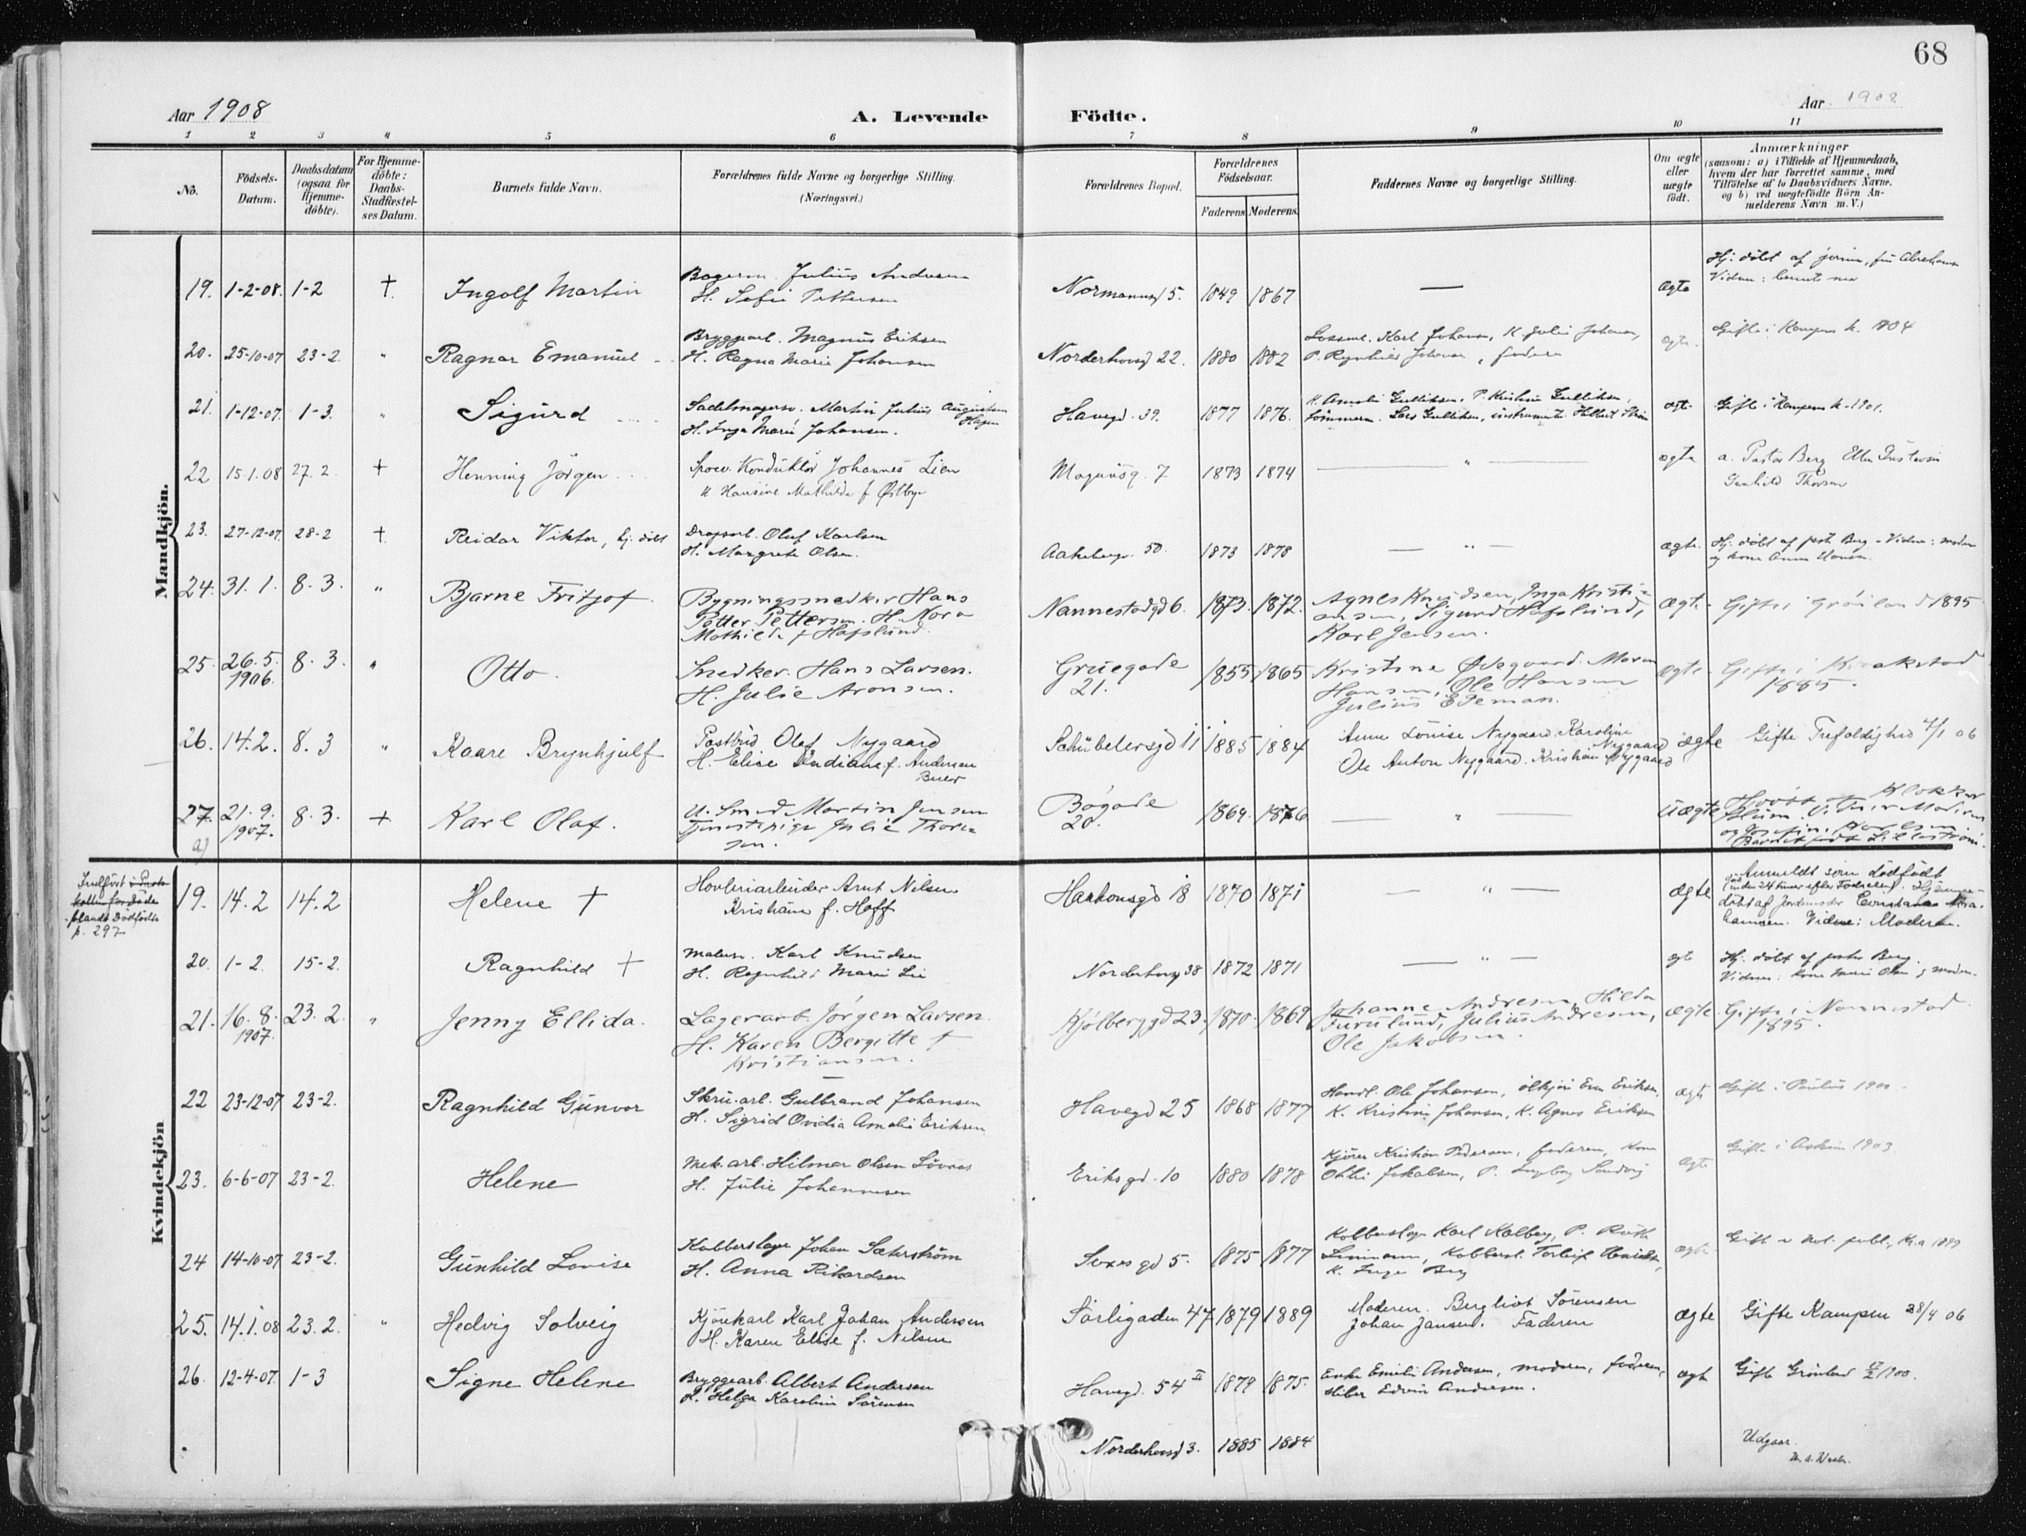 68
Aar 1908 A. Levende Födte. Aar 1908
1 2 3 4 5 6 7 8 9 10 11
No. Födsels-Datum. Daabsdatum (ogsaa for Hjemme-döbte). For Hjemme-döbte: Daabs-Stadfæstel-ses Datum. Barnets fulde Navn. Forældrenes fulde Navne og borgerlige Stilling. (Næringsvei.) Forældrenes Bopæl. Forældrenes Födselsaar. Faderens Moderens. Faddernes Navne og borgerlige Stilling. Om ægte eller uægte födt. Anmærkninger (saasom: a) i Tilfælde af Hjemmedaab, hvem der har forrettet samme, med Tilföielse af to Daabsvidners Navne, og b) ved uægtefödte Börn An-melderens Navn m. V.)
Mandkjön.
19. 1-2-08. 1-2 + Ingolf Martin Julius Andersen
H. Sofie Pettersen Normannsgd 5. 1849 1867 — ægte Hj. döbt af
20. 25-10-07 23-2. " Ragnar Emanuel Bryggearb. Magnus Eriksen
H. Ragna Marie Johansen Norderhovsgd 22. 1880 1882 Karl Johansen, K. Julie Johansen,
Johansen, faderen ægte. Gifte i Kampens k. 1904
21. 1-12-07. 1-3. " Sigurd Sadelmagersv. Martin Julius Augustsen Hagen
H. Inga Marie Johansen. Havegd. 39. 1877 1876. K. Amalie Gulliksen, P. Kristine Gulliksen,
Lars Gulliksen, ægte Gifte i Kampens k. 1901.
22 15.1.08 27.2 + Henning Jörgen Sporv. Konduktör Johannes Lien
K Hansine Mathilde f Østbye Magnusg. 7 1873 1874 — " — ægte a. Pastor Berg
Gunhild Thorsen
23. 27-12-07. 28-2 + Reidar Viktor, hj. döbt Olaf Karlsen
H. Margrete Olsen. Aakebergv. 50. 1873 1878 — " — ægte. Hj. döbt af past. Berg - Vidner: moder
og kone Anna
24. 31.1. 8.3. " Bjarne Fritjof Bygningssnedker Hans
Petter Pettersen. H. Nora
Mathilde f. Hafslund. Nannestadgd 6. 1873. 1872. Agnes Knudsen, Inga Kristi-
ansen, Sigurd Hafslund,
Karl Jensen. ægte. Gifte i Grönland 1895
25. 26.5. 1906. 8.3. " Otto. Snedker. Hans Larsen.
H. Julie Aronsen. Gruegade
21. 1855. 1865 Kristine Ødegaard. Maren
Hansen, Ole Hansen
Julius Edeman. ægte. Gifte i Kraakstad
1885.
26. 14.2. 8.3 " Kaare Brynhjulf Postbud Olaf Nygaard
H. Elise Indiane f. Andersen
Buer Schübelersgd 11 1885 1884 Anne Louise Nygaard. Karoline Nygaard
Ole Anton Nygaard. Kristian Nygaard ægte Gifte Trefoldighed 4/1 06
27. a) 21.9. 1907. 8.3. + Karl Olaf. U. Smed Martin Jensen
Tjenestepige Julie Thor-
sen. Bögade
20. 1869. 1876 — " — Uægte Klokker
Blum. Vidner Moderen
og Josefine Karlsen
Barnet født Lillestrøm.
Kvindekjön
Indfört i Proto-
kollen for Döde
blandt Dödfödte
p. 297
19. 14.2 14.2 Helene + Hövleriarbeider Arnt Nilsen
Kristiane f. Hoff Haakonsgd 18 1870 1871 — " — ægte Anmeldt som dödfödt
(död inden 24 timer efter Fødselen). Hjemme-
döbt af Jordemoder Constance Abra-
hamsen. Vidne: Moderen.
20. 1-2. 15-2. Ragnhild + Malersv. Karl Knudsen
H. Ragnhild Marie Lie Norderhovsg 38 1872 1871 — " — ægte Hj. döbt af pastor Berg.
Vidner: Kone Marie Olsen og moderen.
21. 16.8. 1907. 23.2. " Jenny Ellida. Lagerarb. Jörgen Larsen.
H. Karen Bergitte f
Kristiansen. Kjölberggd 23. 1870. 1869 Johanne Andresen, Hilda
Furulund, Julius Andresen,
Ole Jakobsen. ægte. Gifte i Nannestad
1895.
22 23-12-07 23-2. Ragnhild Gunvor Skru.arb. Gulbrand Johansen
H. Sigrid Ovidia Amalie Eriksen Havegd 25 1868 1877 Handl. Ole Johansen, Eriksen,
K. Kristine Johansen, K. Agnes Eriksen ægte Gifte i Paulus 1900.
23. 6-6-07 23-2. Helene Mek. arb. Hilmar Olsen
H. Julie Johannesen Eriks gd. 10 1880 1878 Kjörer Kristian Pedersen, faderen, Kone
Othilie Jakobsen, P. Ingeborg ægte Gifte i Askim 1903
24 14-10-07 23-2. Gunhild Lovise Kobberslager Johan Sæterström
H. Anna Rikardsen Sexes gd 5. 1875 1877 Kobberslager Karl Kolberg, P. Ruth
Kobbersl. Torleif
K. Inga Berg ægte Gift v. not. publ., Kr.a 1899
25. 14.1.08 23.2. " Hedvig Solveig Kjörekarl Karl Johan Andersen
H. Karen Elise f. Nilsen Sörligaden 47 1879 1889 Moderen. Bergliot Sörensen
Johan Jansen. Faderen ægte Gifte Kampen 28/4 06
26. 12-4-07. 1-3 Signe Helene Bryggearb. Albert Andersen
H. Helga Karoline Sörensen Havegd. 54 II 1879 1875. Enke Emilie Andersen, moderen, faderen,
Edvin Andersen. ægte Gifte Grönland 1900.
Norderhovsgd 3. 1885 1884 Udgaar.